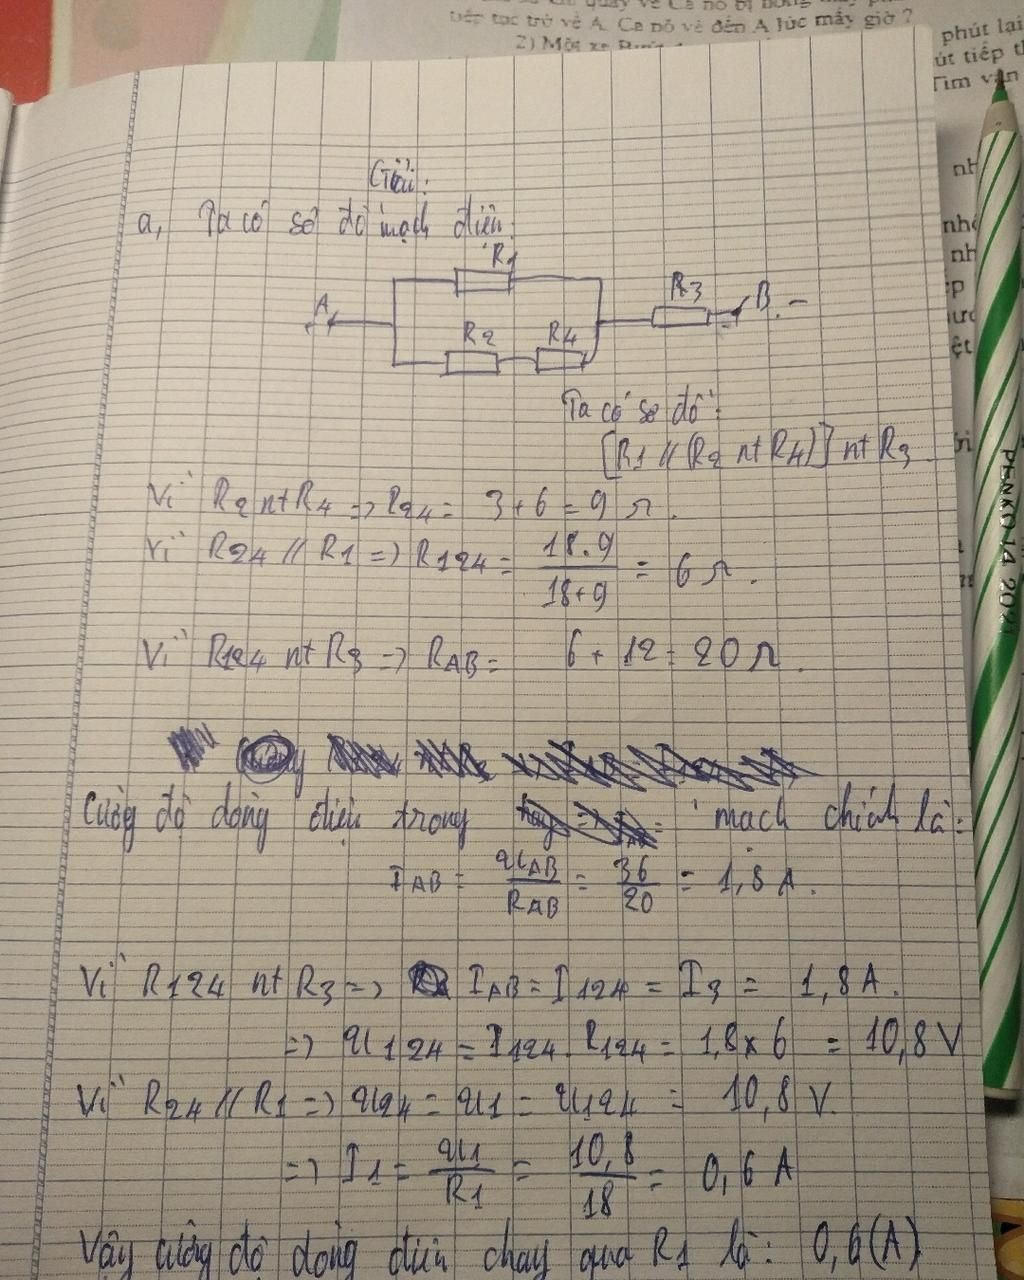 tiếp tục trở về A. Ca nô về đến A lúc mấy giờ ?
2) Một xe
phút lại
út tiếp
Tìm vận
Giải:
a, Ta có sơ đồ mạch điện:
R1
A R2 R4 R3 B -
Ta có sơ đồ:
[R1 // (R2 nt R4)] nt R3
Vì R2 nt R4 => R24 = 3+6 = 9 Ω.
Vì R24 // R1 => R124 = 18.9 / 18+9 = 6 Ω.
Vì R124 nt R3 => RAB = 6 + 12 = 20 Ω.
Cường độ dòng điện trong mạch chính là:
IAB = UAB / RAB = 36 / 20 = 1,8 A.
Vì R124 nt R3 => IAB = I124 = I3 = 1,8 A.
=> U124 = I124. R124 = 1,8 x 6 = 10,8 V
Vì R24 // R1 => U24 = U1 = U124 = 10,8 V.
=> I1 = U1 / R1 = 10,8 / 18 = 0,6 A
Vậy cường độ dòng điện chạy qua R1 là: 0,6(A)
PENKO-14 2021